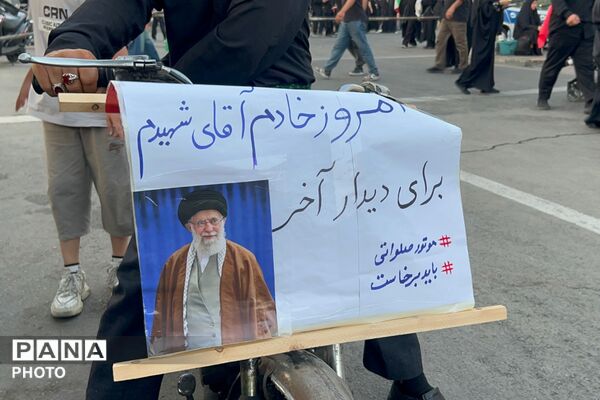 امروز خادم آقای شهیدم
برای دیدار آخر
#موتور صلواتی
#باید برخاست
CRN
PANA
PHOTO